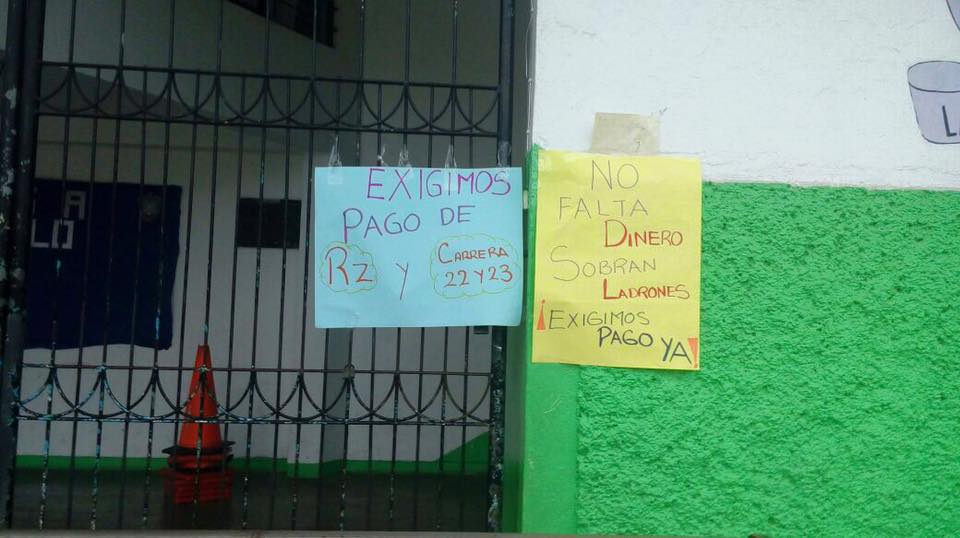 A
LO
EXIGIMOS
PAGO DE
Rz y CARRERA
22 Y 23
NO
FALTA
DINERO
SOBRAN
LADRONES
¡EXIGIMOS
PAGO YA!
L